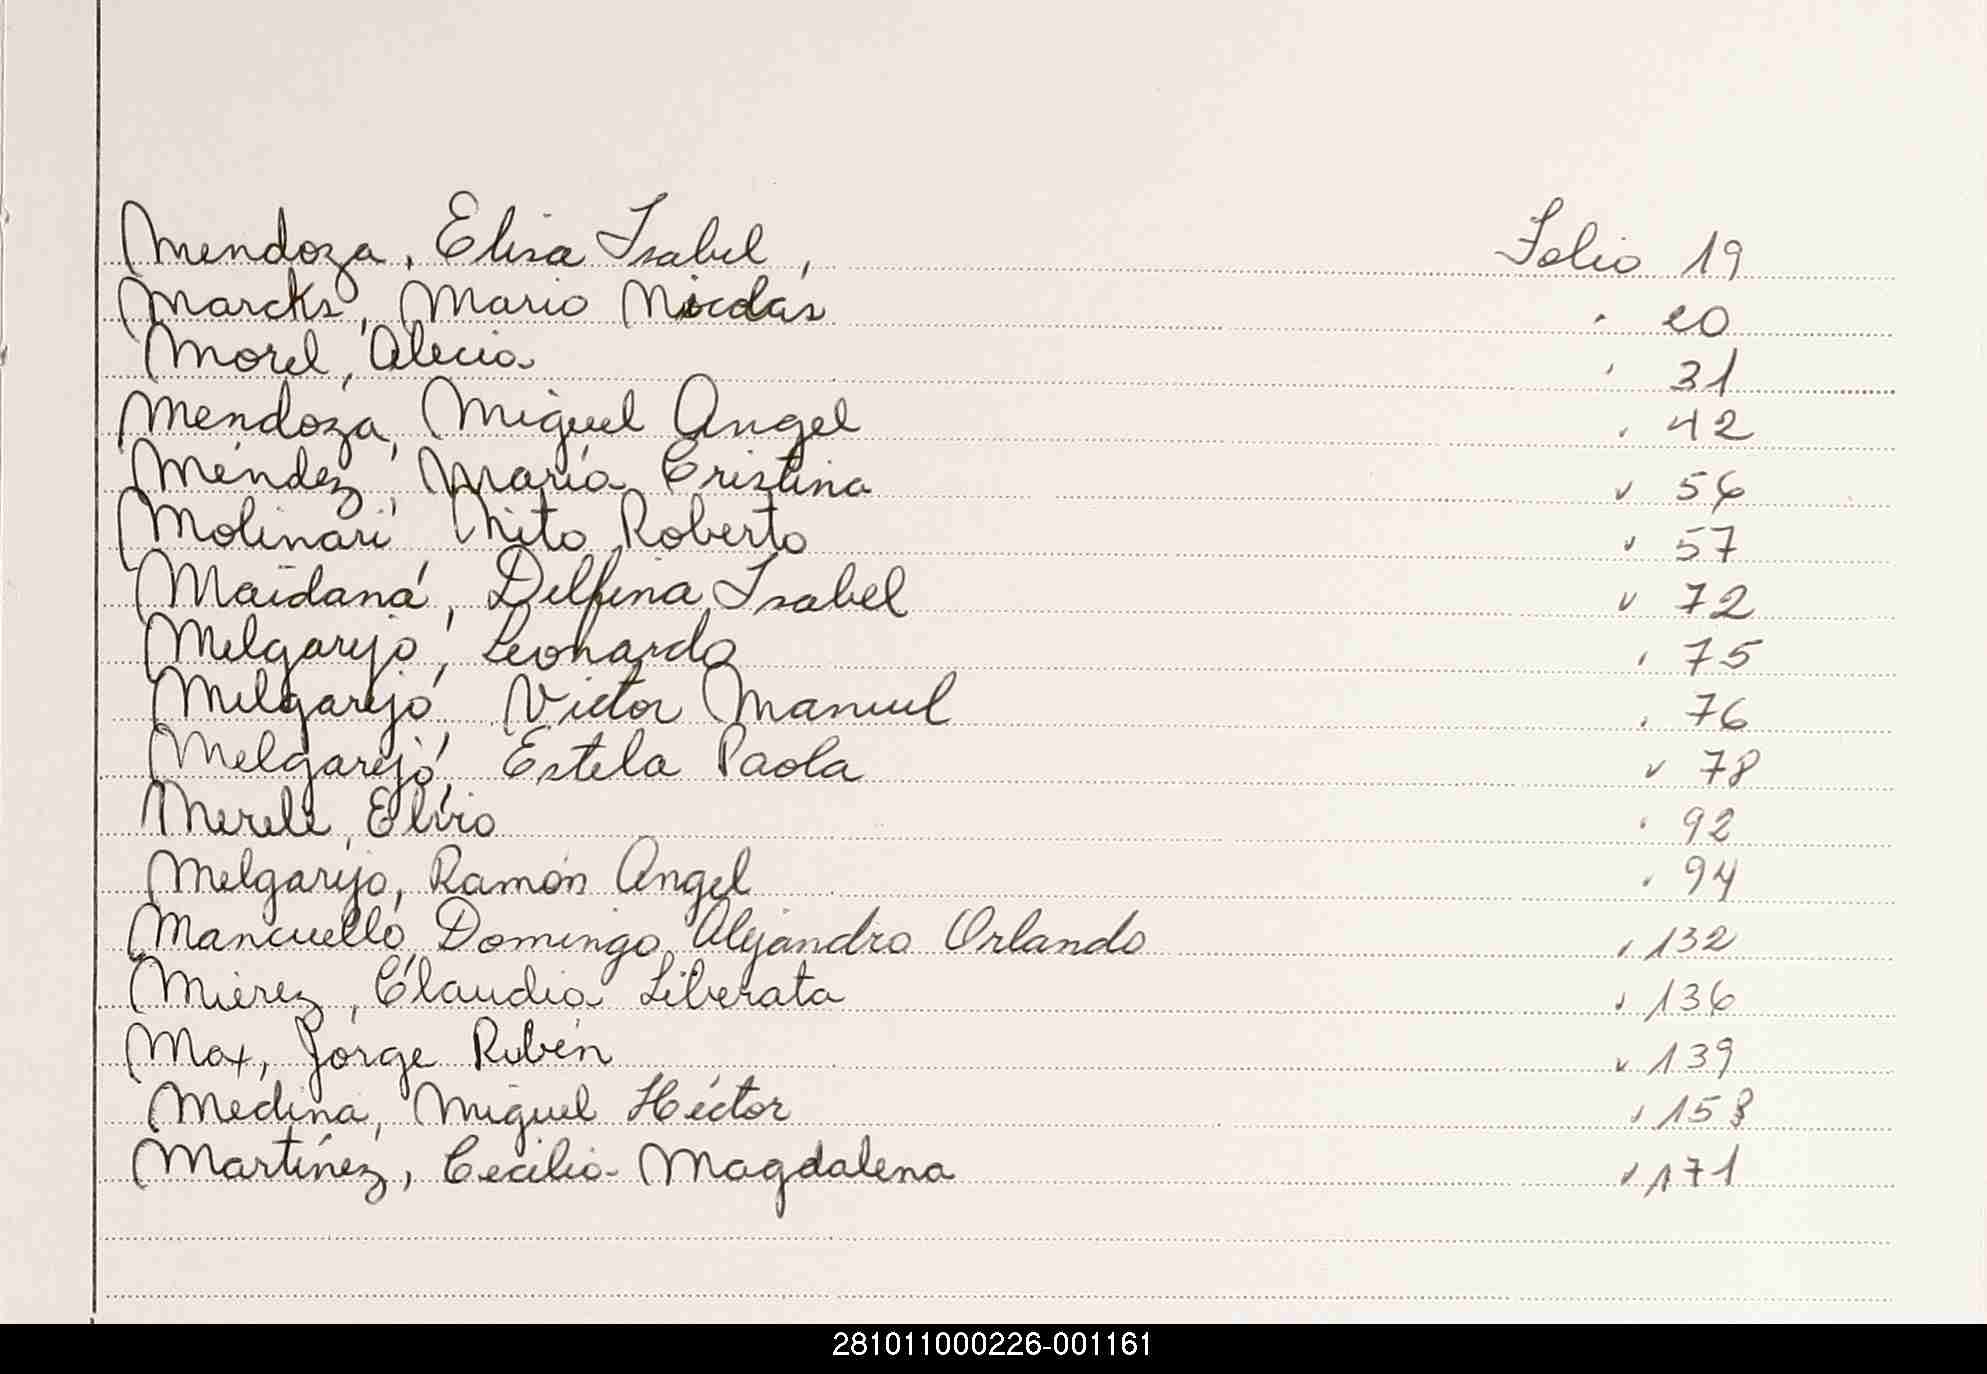 Mendoza, Elisa Isabel, Folio 19
Marcks, Mario Nicolás " 20
Morel, Alecia " 31
Mendoza, Miguel Angel " 42
Méndez, María Cristina " 56
Molinari Roberto " 57
Maidaná, Delfina Isabel " 72
Melgarejo, Leonardo " 75
Melgarejo, Victor Manuel " 76
Melgarejo, Estela Paola " 78
Merele, Elvio " 92
Melgarejo, Ramón Angel " 94
Mancuello, Domingo Alejandro Orlando " 132
Miérez, Claudia Liberata " 136
Max, Jorge Rubén " 139
Medina, Miguel Héctor " 158
Martínez, Cecilia Magdalena " 171
281011000226-001161